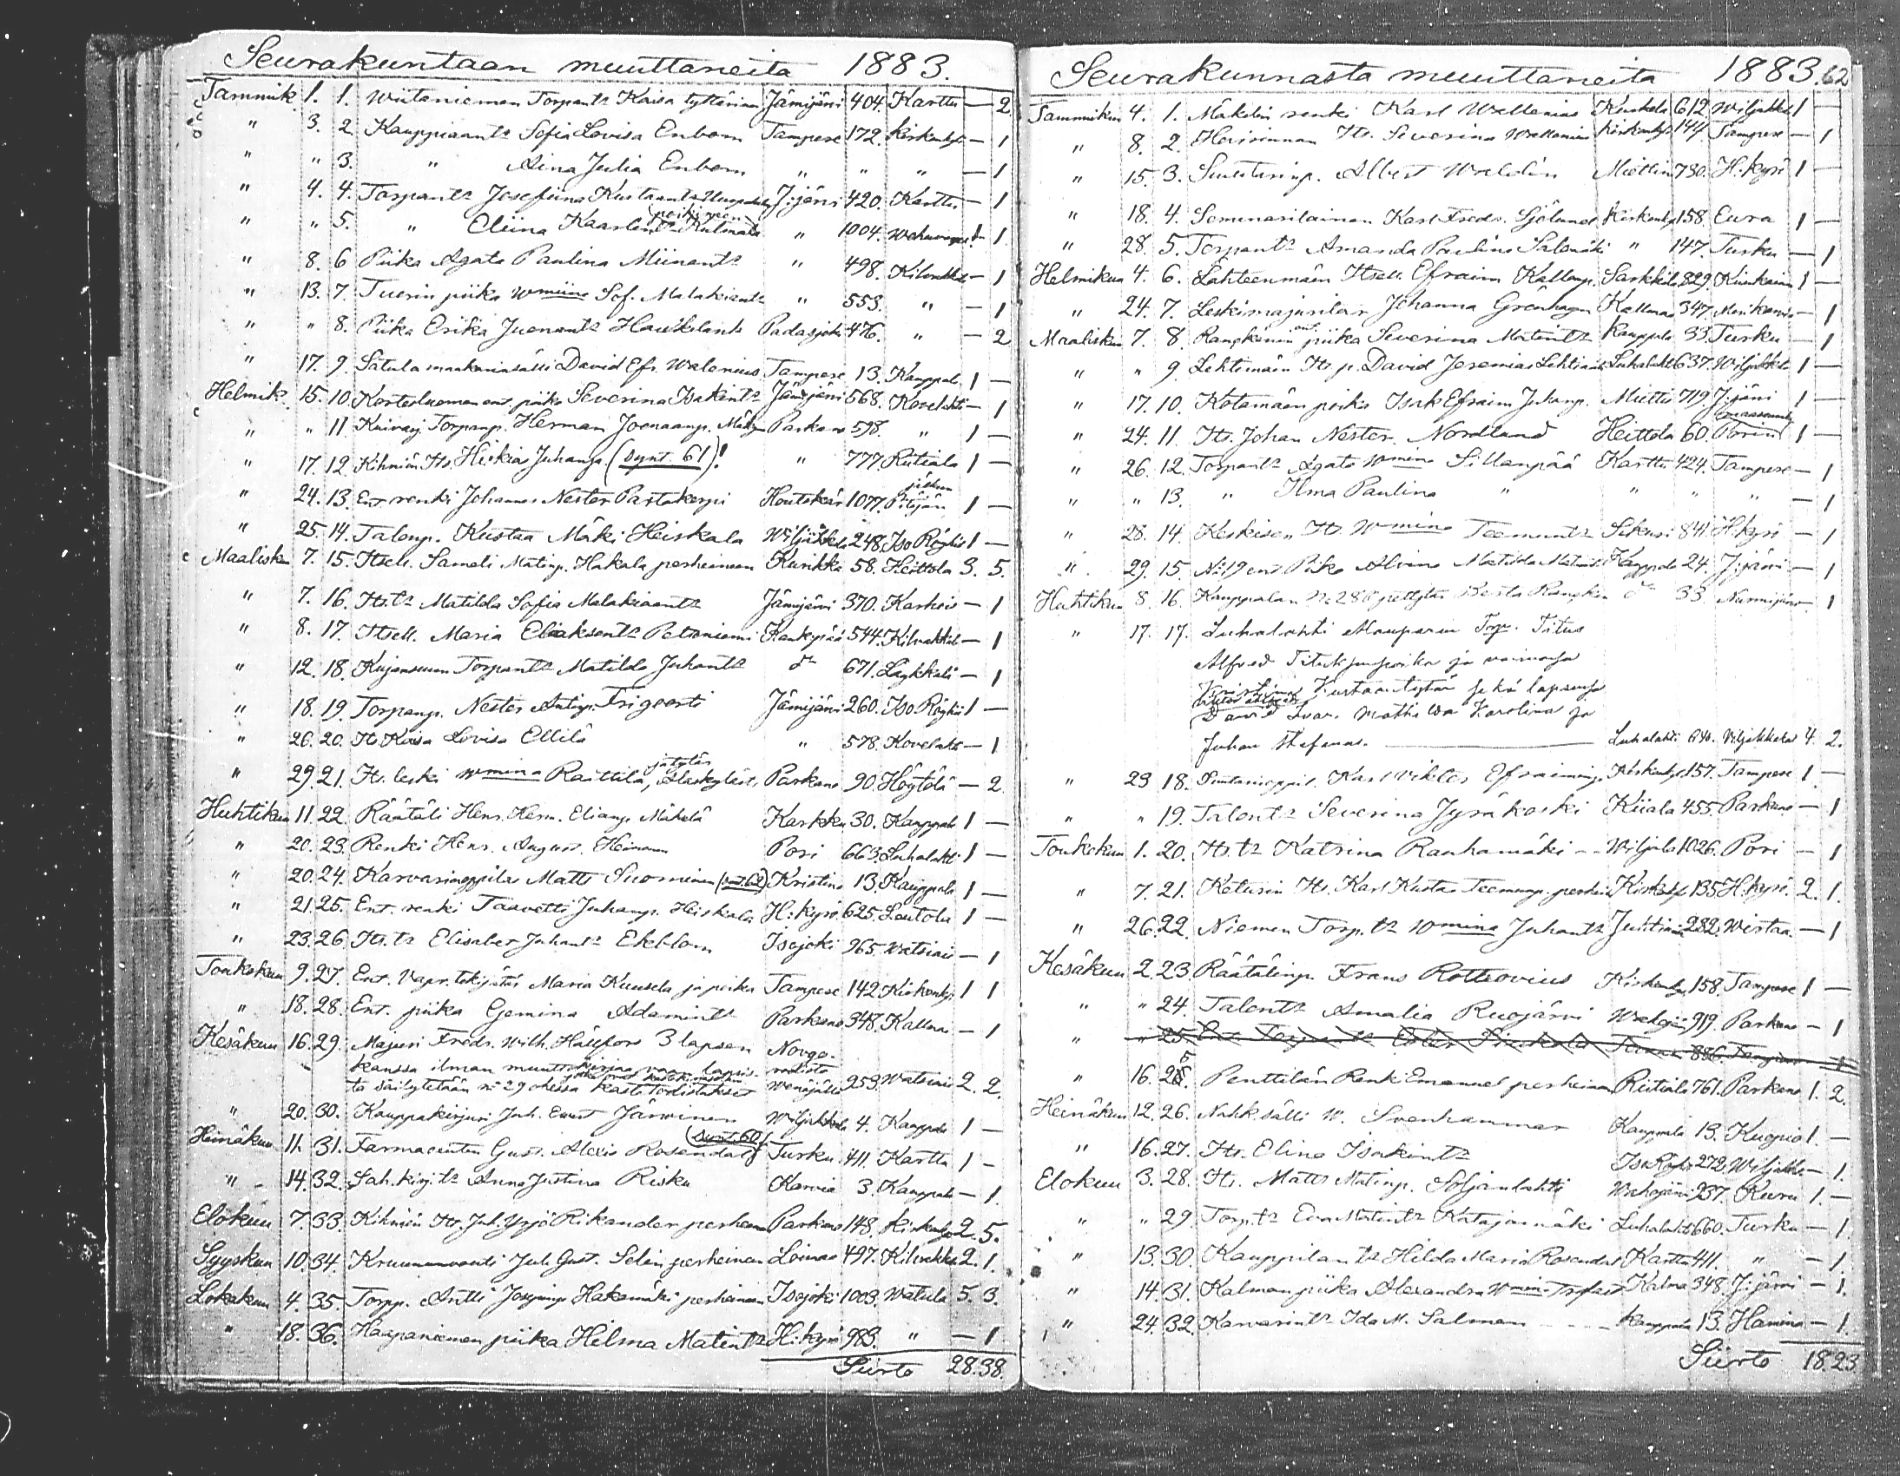 Seurakuntaan muuttaneita 1883.
Tammik. 1. 1. Wiitaniemen Torpant: Kaisa tyttärineen Jämijärvi 404. Karttu — 2
" 3. 2. Kauppiaant: Sofia Lovisa Enbom Tampere 172. Kirkonky — 1
" " 3. " Aina Julia Enbom " " " — 1
" 4. 4. Torpant: Josefiina Kustaant: J:järvi 420. Karttu — 1
" " 5. " Eliina Kaarlent: " 1004. — 1
" 8. 6 Piika Agata Paulina Miinant: " 498. Kilvakkala — 1
" 13. 7. Tuerin piika Wmiina Sof. Malakiant: " 553. " — 1
" " 8. Piika Erika Juenant: Padasjoki 476. " — 2
" 17. 9. Satulamaakarisälli David Efr. Walenius Tampere 13. Kauppala 1 —
Helmik. 15. 10. ent piika Severina Isakint: Jämijärvi 568. Kovelahti — 1
" " 11. Torpanp. Herman Joonaanp. Parkano 578. " 1 —
" 17. 12. Kihniön Its. Hiskias Juhanp. (synt. 61)! " 777. Riitiala 1 —
" 24. 13. Ent. renki Johannes Nestor Partakorpi Houtskär 1077. P:töjän 1 —
" 25. 14. Talonp. Kustaa Mäki-Heiskala Wiljakkala 248. Iso Röyhiö 1 —
Maalisk. 7. 15. Itsell. Sameli Matinp. Hakala perheineen Kurikka 58. Heittola 3. 5.
" 7. 16. Its.t: Matilda Sofia Malakiaant: Jämijärvi 370. Karhois — 1
" 8. 17. Itsell. Maria Eliaksent: Petäniemi Kankypää 544. Kilvakkala — 1
" 12. 18. Kujansuun Torpant: Matilda Juhant: d:o 671. Läykkälä — 1
" 18. 19. Torpanp. Nestor Antinp. Frigårti Jämijärvi 260. Iso Röyhiö 1 —
" 26. 20. Its Kaisa Lovisa Ellilä " 578. Kovelahti — 1
" 29. 21. Its. leski Wmina Raittila, ja tytär Parkano 90. Höytölä — 2
Huhtikuu 11. 22. Räätäli Henr. Herm. Elianp. Mäkelä Karkku 30. Kauppala 1 —
" 20. 23. Renki Henr. August. Heinonen Pori 663. Luhalahti 1 —
" 20. 24. Karvarinoppilas Matts Suominen (synt. 62) Kristina 13. Kauppala 1 —
" 21. 25. Ent. renki Taavetti Juhanp. Heiskala H:kyrö 625. Leutola 1 —
" 23. 26. Its.t: Elisabet Juhant: Ekblom Isojoki 965. Watsiais — 1
Toukokuu 9. 27. Ent. Vapr. tekijätär Maria Kuusela ja poika Tampere 142. Kirkonky 1 1
" 18. 28. Ent. piika Gemina Adamint: Parkano 348. Kallma — 1
Kesäkuu 16. 29. Majuri Fredr. Wilh. Hällfors 3 lapsen Novgo-
kanssa ilman muuttokirjaa vaan lapsis-
ta säilytetään n:o 29 ohessa kastetodistukset Wenäjältä 253. Watsiais 2. 2.
" 20. 30. Kauppakirjuri Joh. Ernst Järvinen Wiljakkala 4. Kauppala 1 —
Heinäkuu 11. 31. Farmaceutin Gust. Alexis Rosendal (synt. 60) Turku 411. Karttu 1 —
" 14. 32. Lah.kirj.t: Anna Justina Risku Karvia 3. Kauppala — 1.
Elokuu 7. 33. Kihniön Its. Joh. Yrjö Rikander perheineen Parkano 148. Kirkonky 2. 5.
Syyskuu 10. 34. Kruununvouti Joh. Gust. Selin perheineen Loimas 497. Kilvakkala 2. 1.
Lokakuu 4. 35. Torpp. Antti Joseppinp Hakamäki perheineen Isojoki 1003. Watula 5. 3.
" 18. 36. Haapaniemen piika Hilma Matint: H:kyrö 983. " — 1
Siirto 28. 38.
Seurakunnasta muuttaneita 1883. 62
Tammikuu 4. 1. Mäkelän renki Karl Wallenius 612. Wiljakkala 1 —
" 8. 2. Its. Severina Wallenius Kirkonky 144. Tampere — 1
" 15. 3. Suutarinp. Albert Walldén Miettin 730. H:kyrö 1 —
" 18. 4. Seminarilainen Karl Fredr. Sjölund Kirkonky 158. Eura 1 —
" 28. 5. Torpant: Amanda Paulina Salomäki " 147. Turku — 1
Helmikuu 4. 6. Lahteenmäen Itsell. Efraim Kallenp. Sarkkila 329. Kiukainen 1 —
" 24. 7. Johanna Grönhagen Kallmaa 347. Merikarvia — 1
Maaliskuu 7. 8. ent. piika Severina Matint: Kauppala 33. Turku — 1
" " 9. Lehtimäen Its. p. David Jeremias Lehtinen Luhalahti 637. Wiljakkala 1 —
" 17. 10. Kotamäen poika Isak Efraim Juhanp. Miettin 719. J:järvi 1 —
" 24. 11. Its. Johan Nestor Nordlund Heittola 60. Porin 1 —
" 26. 12. Torpant: Agata Wmina Sillanpää Karttu 424. Tampere — 1
" " 13. " Ilma Paulina " " " — 1
" 28. 14. Keskisen Its. Wmina Teemunt: Sikuri 841. H:kyrö — 1
" 29. 15. N:o 19 ent. Piika Alvina Matilda Kauppala 24. J:järvi — 1
Huhtikuu 8. 16. Kauppalan N:o 28 Berta d:o 33. Nurmijärvi — 1
" 17. 17. Luhalahti Mauparin Torp. Titus
Alfred Titukjunpoika ja vaimonsa
Kustaantytär sekä lapsensa
David Ivar. Mathilda Karolina ja
Juhan Stefanus. Luhalahti 640. Viljakkala 4. 2.
" 23 18. Suutarioppil. Karl Viktor Efraiminp. Kirkonky 157. Tampere 1 —
" " 19. Talont: Severina Jyräkoski Kiiala 455. Parkano — 1
Toukokuu 1. 20. Its.t: Katrina Rauhamäki Wiljala 1026. Pori — 1
" 7. 21. Its. Karl Kustaa Teemunp. perhein Kirkonky 135. H:kyrö 2. 1.
" 26. 22. Niemen Torp.t: Wmina Juhant: Juhtimä 282. — 1
Kesäkuu 2. 23. Räätälinp. Frans Rotkovius Kirkonky 158. Tampere 1 —
" " 24. Talont: Amalia Ruojärvi Wahojär 919. Parkano — 1
" " 25. Ent. Torpant: 886. Tampere 1
" 16. 25. Penttilän Renki Emanuel perheineen Riitiala 761. Parkano 1. 2.
Heinäkuu 12. 26. Nahk. sälli W. Svenhammar Kauppala 13. Kuopio 1. —
" 16. 27. Its. Elina Isakint: Iso Röyhi 272. Wiljakkala — 1.
Elokuu 3. 28. Its. Matts Matinp. Siljanlahti Wahojärvi 937. Kuru 1. —
" " 29. Torp.t: Eva Matint: Katajamäki Luhalahti 660. Turku — 1.
" 13. 30. Kauppilan t: Hilda Maria Rosendal Karttu 411. " — 1.
" 14. 31. Kalman piika Alexandra Wmin. Kalma 348. J:järvi — 1.
" 24. 32. Karvarint: Ida M. Salmen Kauppala 13. Hamina — 1.
Siirto 18. 23